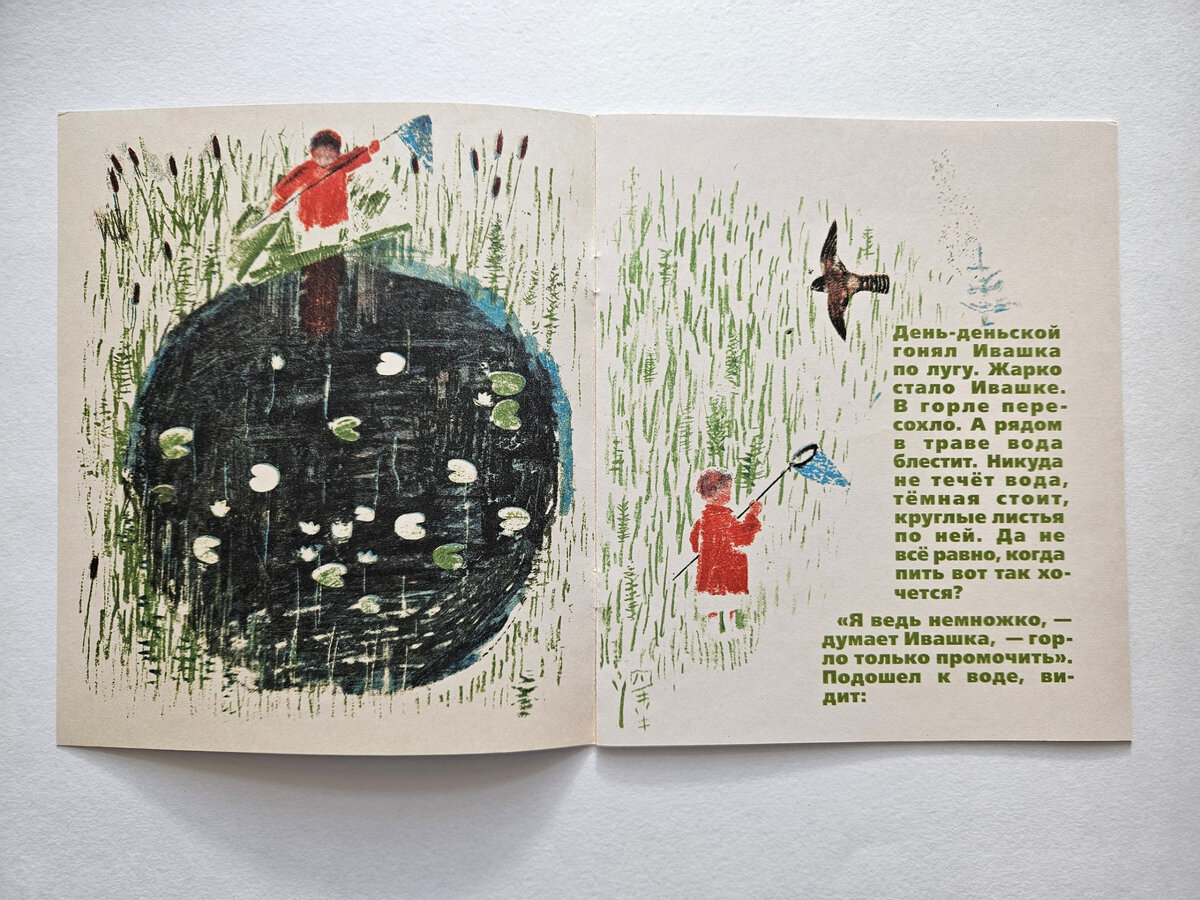 День-деньской
гонял Ивашка
по лугу. Жарко
стало Ивашке.
В горле пере-
сохло. А рядом
в траве вода
блестит. Никуда
не течёт вода,
тёмная стоит,
круглые листья
по ней. Да не
всё равно, когда
пить вот так хо-
чется?
«Я ведь немножко, —
думает Ивашка, — гор-
ло только промочить».
Подошел к воде, ви-
дит: